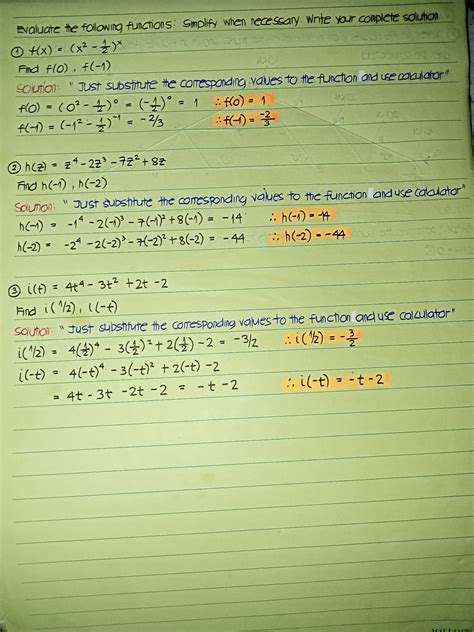 Evaluate the following functions: Simplify when necessary. Write your complete solution
① f(x) = (x² - 1/2)ˣ
Find f(0), f(-1)
Solution: " Just substitute the corresponding values to the function and use calculator"
f(0) = (0² - 1/2)⁰ = (-1/2)⁰ = 1 ∴ f(0) = 1
f(-1) = (-1² - 1/2)⁻¹ = -2/3 ∴ f(-1) = -2/3
② h(z) = z⁴ - 2z³ - 7z² + 8z
Find h(-1), h(-2)
Solution: " Just substitute the corresponding values to the function and use calculator"
h(-1) = -1⁴ - 2(-1)³ - 7(-1)² + 8(-1) = -14 ∴ h(-1) = -14
h(-2) = -2⁴ - 2(-2)³ - 7(-2)² + 8(-2) = -44 ∴ h(-2) = -44
③ i(t) = 4t⁴ - 3t² + 2t - 2
Find i(1/2), i(-t)
Solution: " Just substitute the corresponding values to the function and use calculator"
i(1/2) = 4(1/2)⁴ - 3(1/2)² + 2(1/2) - 2 = -3/2 ∴ i(1/2) = -3/2
i(-t) = 4(-t)⁴ - 3(-t)² + 2(-t) - 2
= 4t - 3t - 2t - 2 = -t - 2 ∴ i(-t) = -t - 2